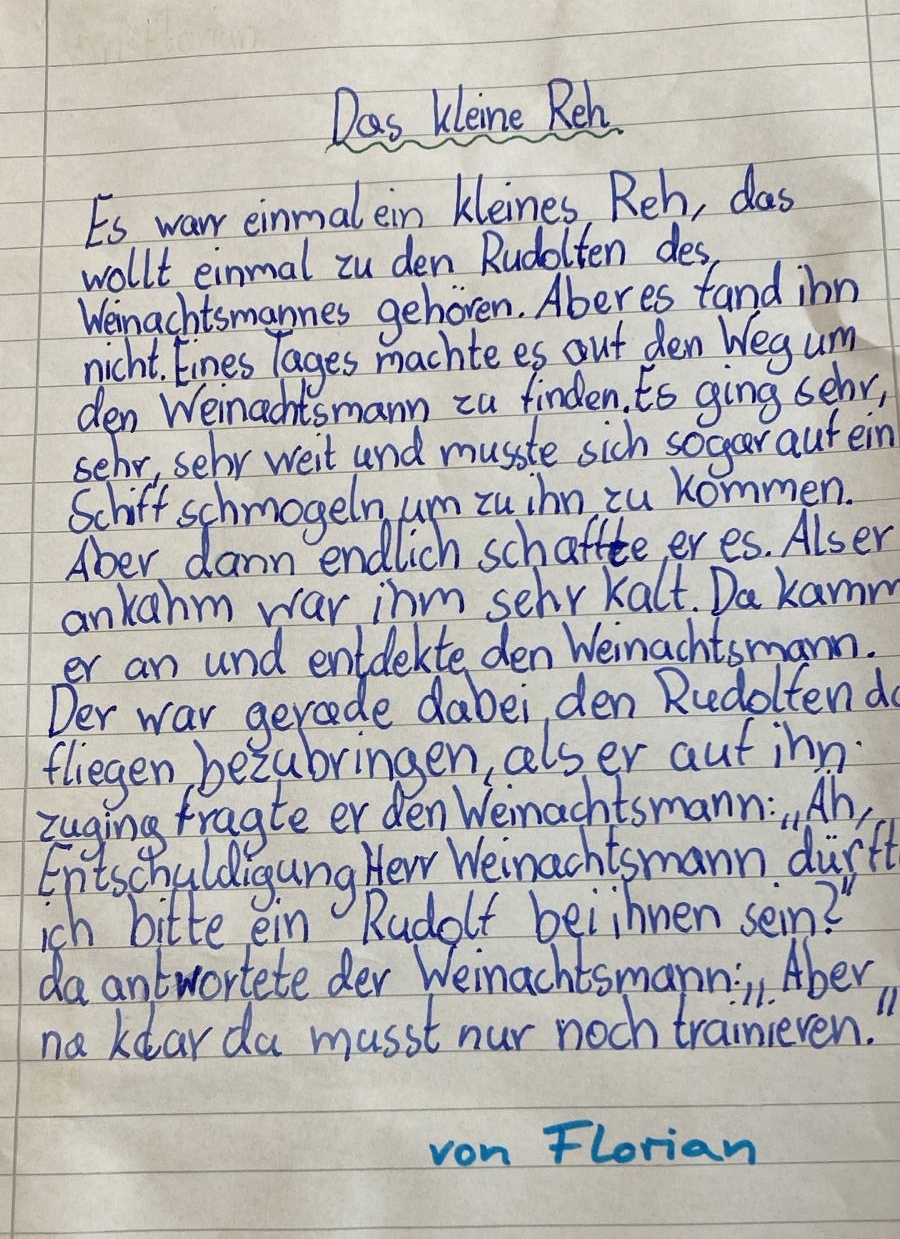 Das kleine Reh
Es warr einmal ein kleines Reh, das
wollt einmal zu den Rudolfen des
Weinachtsmannes gehören. Aber es fand ihn
nicht. Eines Tages machte es auf den Weg um
den Weinachtsmann zu finden. Es ging sehr,
sehr, sehr weit und musste sich sogar auf ein
Schiff schmogeln um zu ihn zu kommen.
Aber dann endlich schaffte er es. Als er
ankahm war ihm sehr kalt. Da kamm
er an und entdekte den Weinachtsmann.
Der war gerade dabei den Rudolfen da
fliegen bezubringen, als er auf ihn
zuging fragte er den Weinachtsmann: „Äh,
Entschuldigung Herr Weinachtsmann dürft
ich bitte ein Rudolf bei ihnen sein?"
da antwortete der Weinachtsmann: „Aber
na klar du musst nur noch trainieren."
von Florian